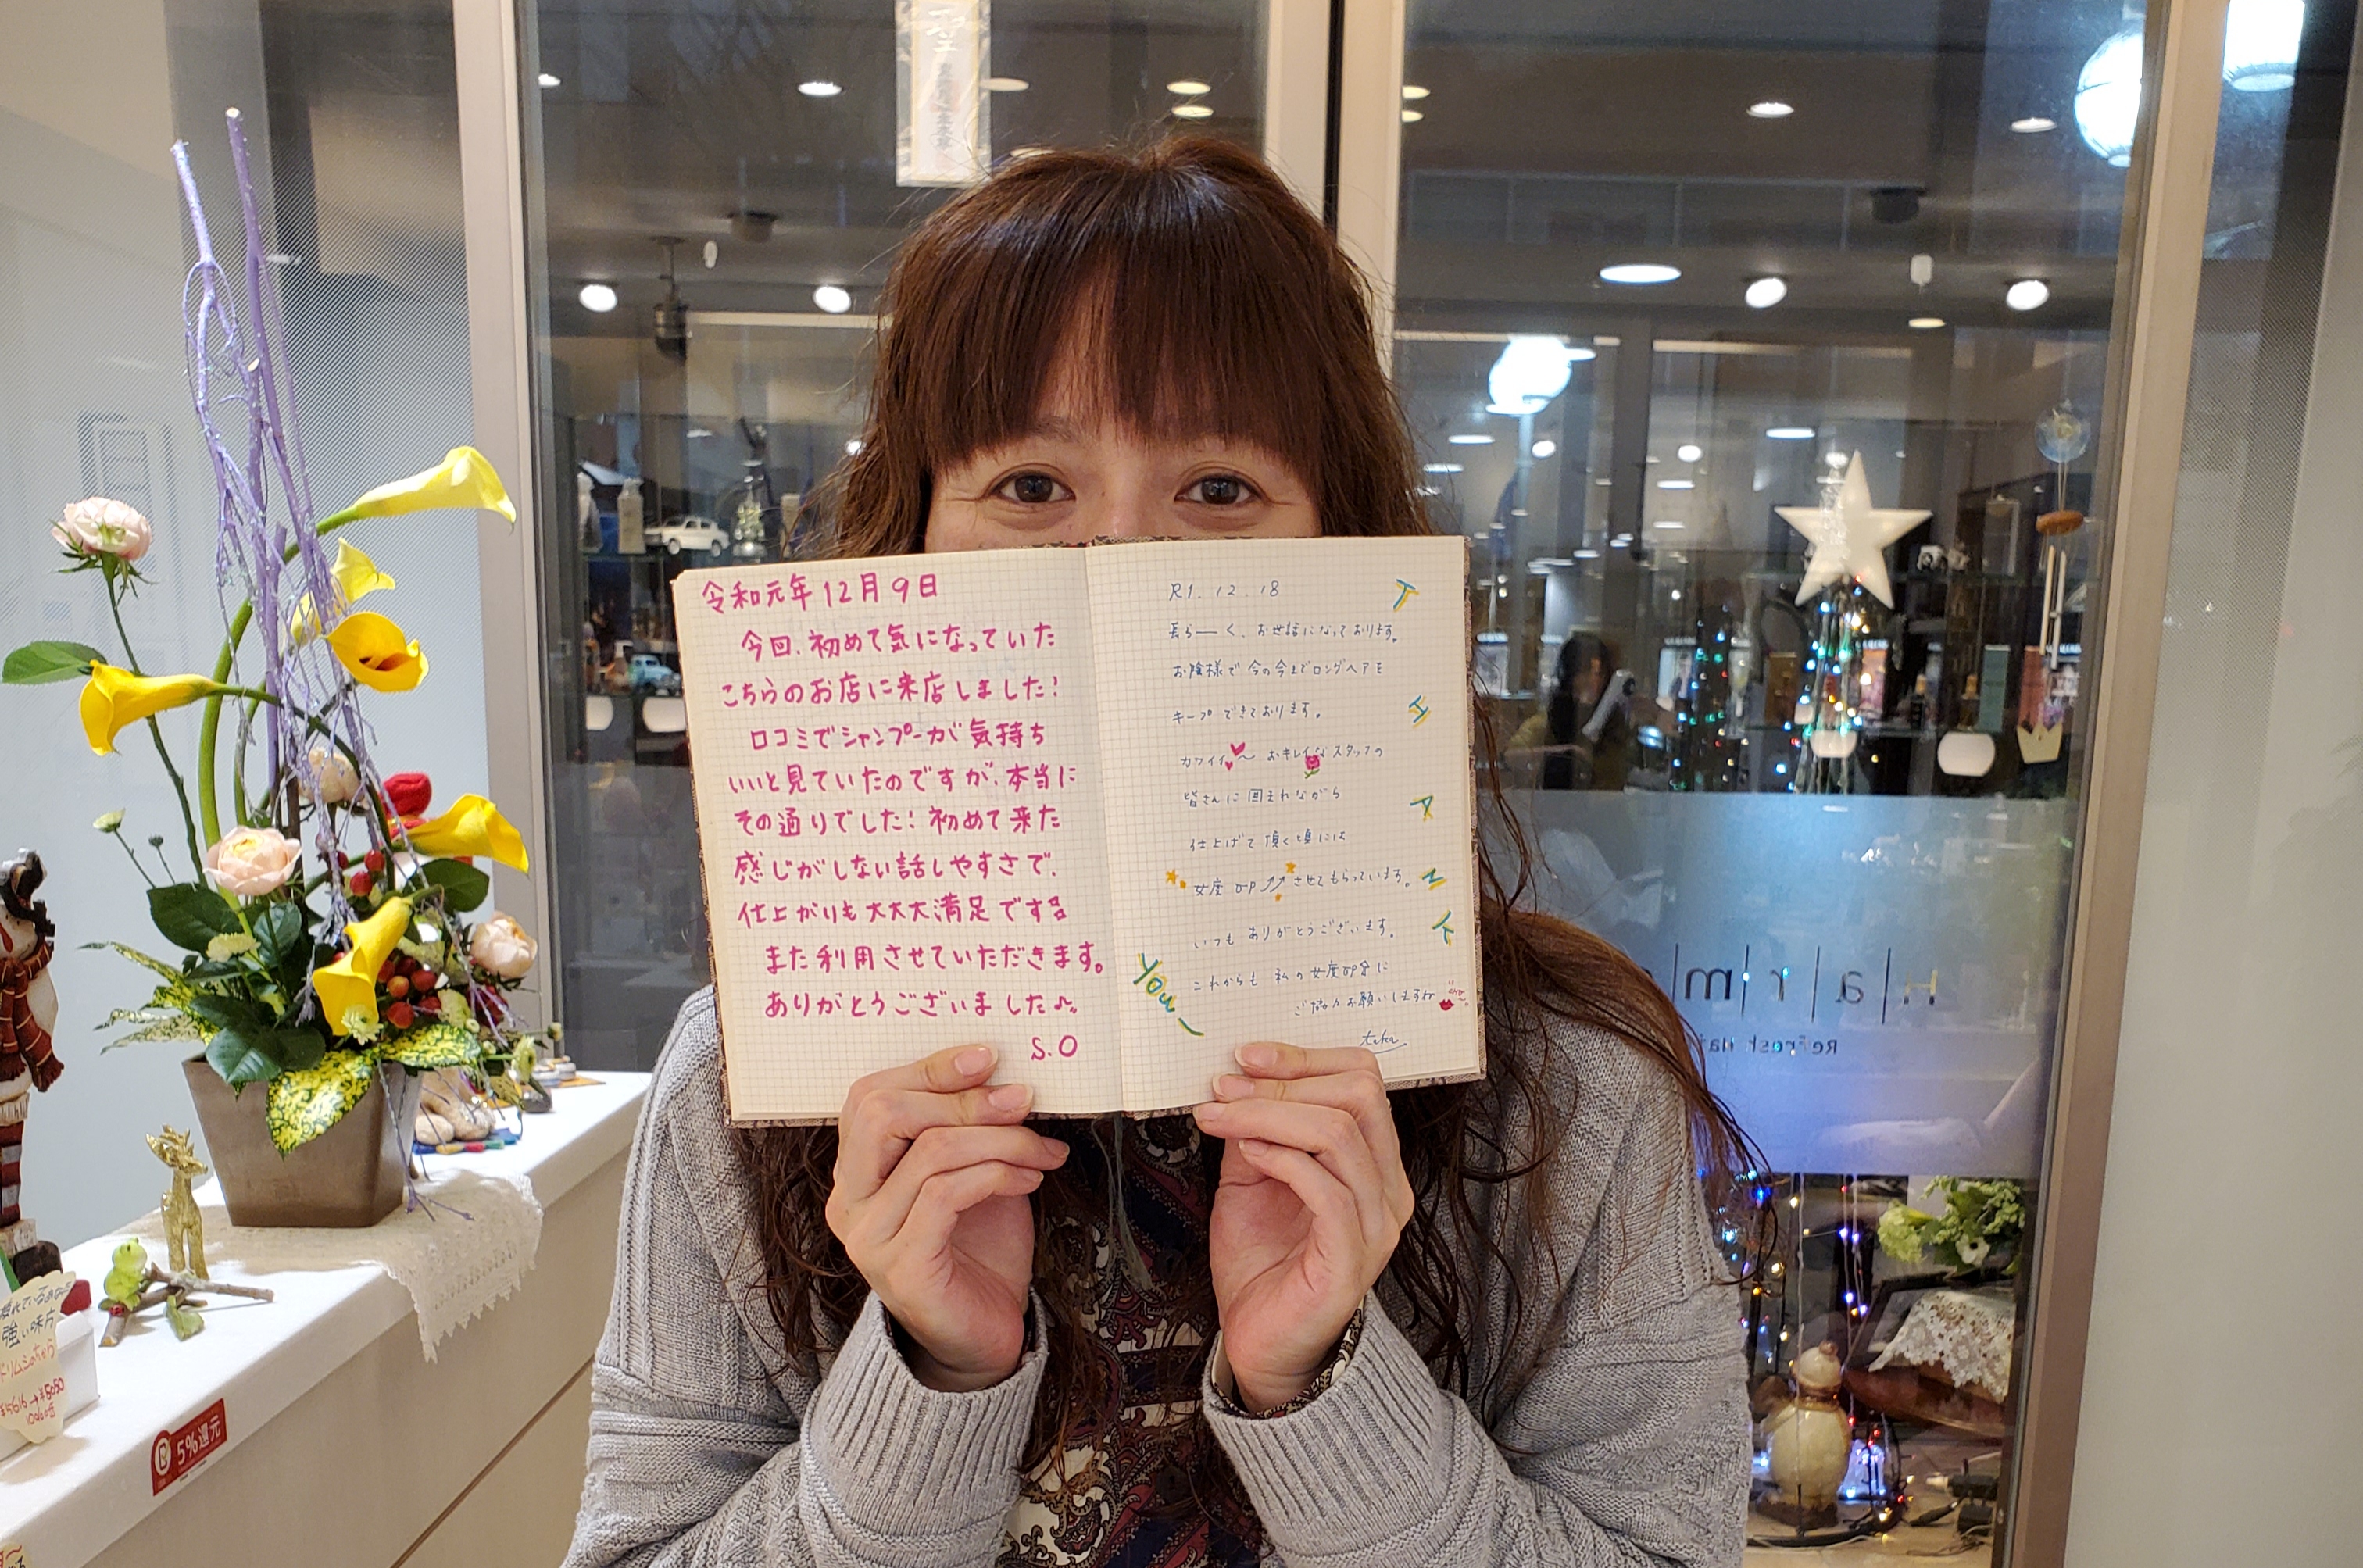 令和元年12月9日
今回、初めて気になっていた
こちらのお店に来店しました!
口コミでシャンプーが気持ち
いいと見ていたのですが、本当に
その通りでした!初めて来た
感じがしない話しやすさで、
仕上がりも大大大満足です
また利用させていただきます。
ありがとうございました♪
S.O
R1.12.18
長ら――く、お世話になっております。
お陰様で今の今までロングヘアを
キープできております。
カワイイ〜おキレイなスタッフの
皆さんに囲まれながら
仕上げて頂く頃には
女度UPさせてもらっています。
いつもありがとうございます。
これからも私の女度UPに
ご協力お願いしますね
taka
THANK
YOU
強い味方
5%還元
Harm
ReFresh Hai